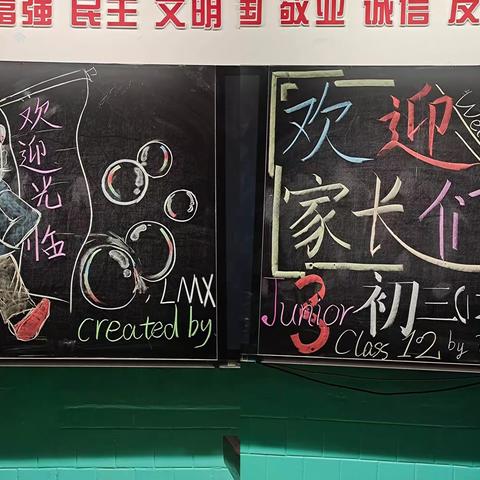 富强 民主 文明 国 敬业 诚信 友
欢迎光临
LMX
created by
欢迎
家长们
Junior 3 初三(12
Class 12 by